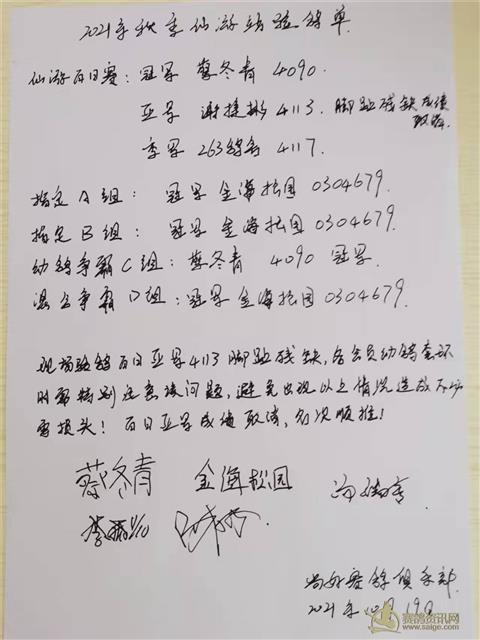 2021年秋季仙游站验鸽单
仙游百日赛：冠军 蔡冬青 4090.
亚军 谢捷彬 4113. 脚趾残缺成绩
取消.
季军 263鸽舍 4117.
指定A组： 冠军 金海松园 0304679.
指定B组： 冠军 金海松园 0304679.
幼鸽争霸C组：蔡冬青 4090 冠军.
混合争霸D组：冠军 金海松园 0304679.
现场验鸽百日亚军4113脚趾残缺，各会员幼鸽套环
时需特别注意该问题，避免出现以上情况造成不必
要损失！百日亚军成绩取消，名次顺推！
蔡冬青 金海松园
尚好赛鸽俱乐部
2021年10月19日
赛鸽资讯网
www.saige.com